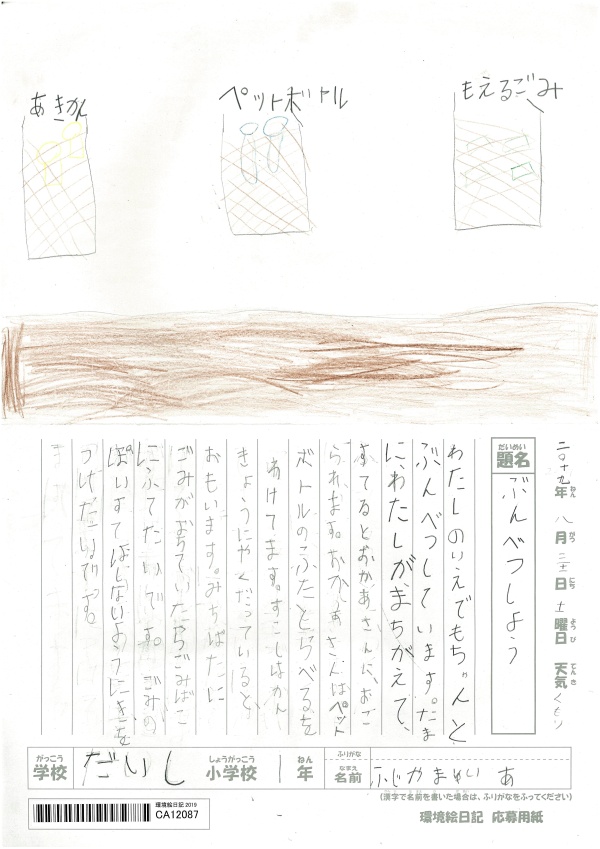 あきかん
ペットボトル
もえるごみ
二〇十九年 八月 日 土曜日 天気 くもり
ねん がつ にち ようび てんき
だいめい
題名
ぶんべつしよう
わたしのいえでもちゃんと
ぶんべつしています。たま
に、わたしがまちがえて、
すてるとおかあさんに、おご
られます。おかあさんはペット
ボトルのふたとらべるを
わけてます。すこしはかん
きょうにやくだっていると、
おもいます。みちばたに
ごみがおちていたらごみばこ
にふてたいです。ごみの
ぽいすてはしないようにきを
つけたいです。
がっこう しょうがっこう ねん ふりがな
学校 だいし 小学校 一年 なまえ 名前 ふじやまれい あ
(漢字で名前を書いた場合は、ふりがなをふってください)
環境絵日記 2019
CA12087
環境絵日記 応募用紙